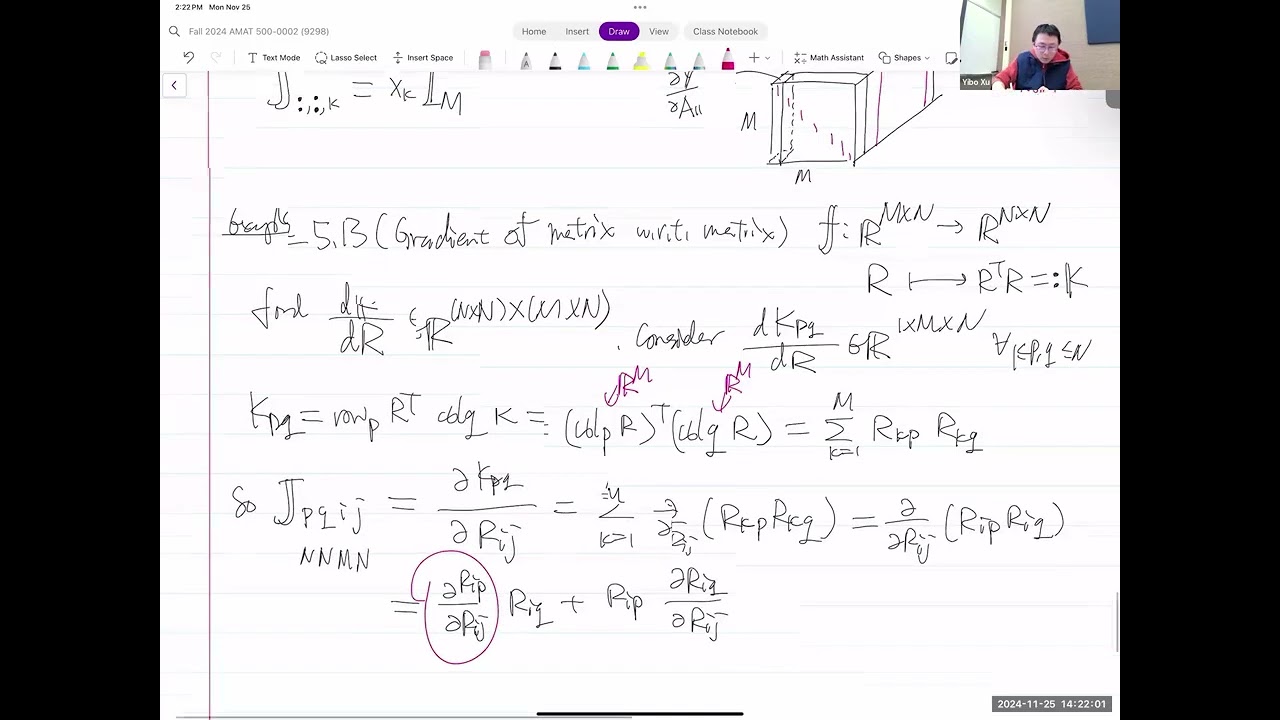 2:22 PM Mon Nov 25
Fall 2024 AMAT 500-0002 (9298)
Home Insert Draw View Class Notebook
Text Mode Lasso Select Insert Space Math Assistant Shapes
Yibo Xu
𝕁:,:,k = x_k 𝕀_M
∂Y/∂A₁₁
M
M
5.13 (Gradient of matrix w.r.t. matrix) f: ℝ^{M×N} → ℝ^{N×N}
R ⟼ RᵀR =: K
find dK/dR ∈ ℝ^{(N×N)×(M×N)}. Consider dK_pq/dR ∈ ℝ^{1×M×N} ∀ 1≤p,q≤N
ℝ^M ℝ^M
K_pq = row_p Rᵀ col_q K = (col_p R)ᵀ (col_q R) = Σ_{k=1}^{M} R_kp R_kq
So 𝕁_pqij = ∂K_pq/∂R_ij = Σ_{k=1}^{M} ∂/∂R_ij (R_kp R_kq) = ∂/∂R_ij (R_ip R_iq)
N N M N
= ∂R_ip/∂R_ij R_iq + R_ip ∂R_iq/∂R_ij
2024-11-25 14:22:01